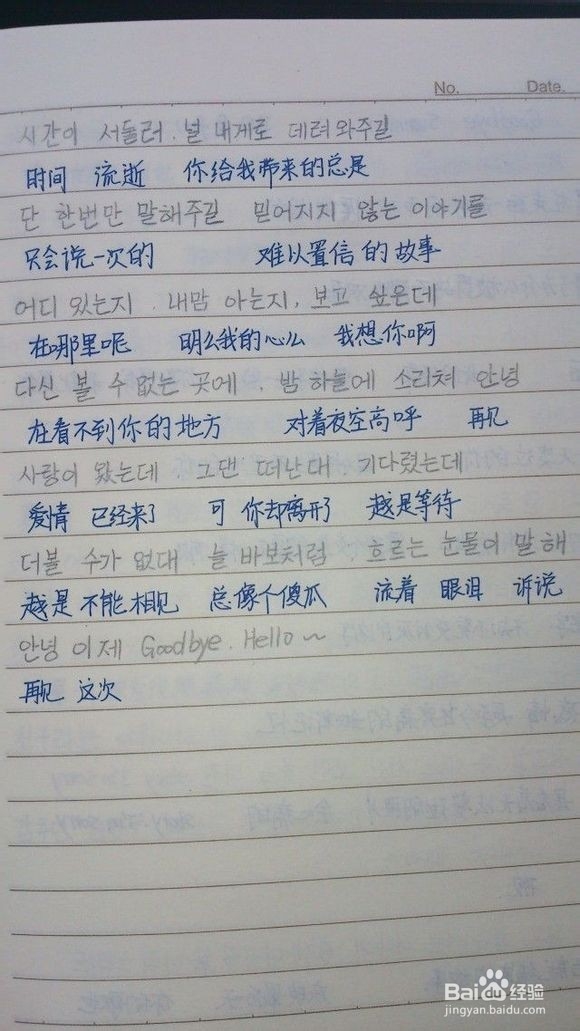 No.  Date.
시간이 서둘러. 널 내게로 데려와주길
时间 流逝 你给我带来的总是
단 한번만 말해주길 믿어지지 않는 이야기를
只会说一次的 难以置信的故事
어디 있는지. 내맘 아는지, 보고 싶은데
在哪里呢 明么我的心么 我想你啊
다신 볼 수 없는 곳에. 밤 하늘에 소리쳐 안녕
在看不到你的地方 对着夜空高呼 再见
사랑이 왔는데. 그댄 떠난대 기다렸는데
爱情 已经来了 可 你却离开了 越是等待
더볼 수가 없대 늘 바보처럼. 흐르는 눈물이 말해
越是不能相见 总像个傻瓜 流着 眼泪 诉说
안녕 이제 Goodbye. Hello~
再见 这次
Baidu经验
jingyan.baidu.com